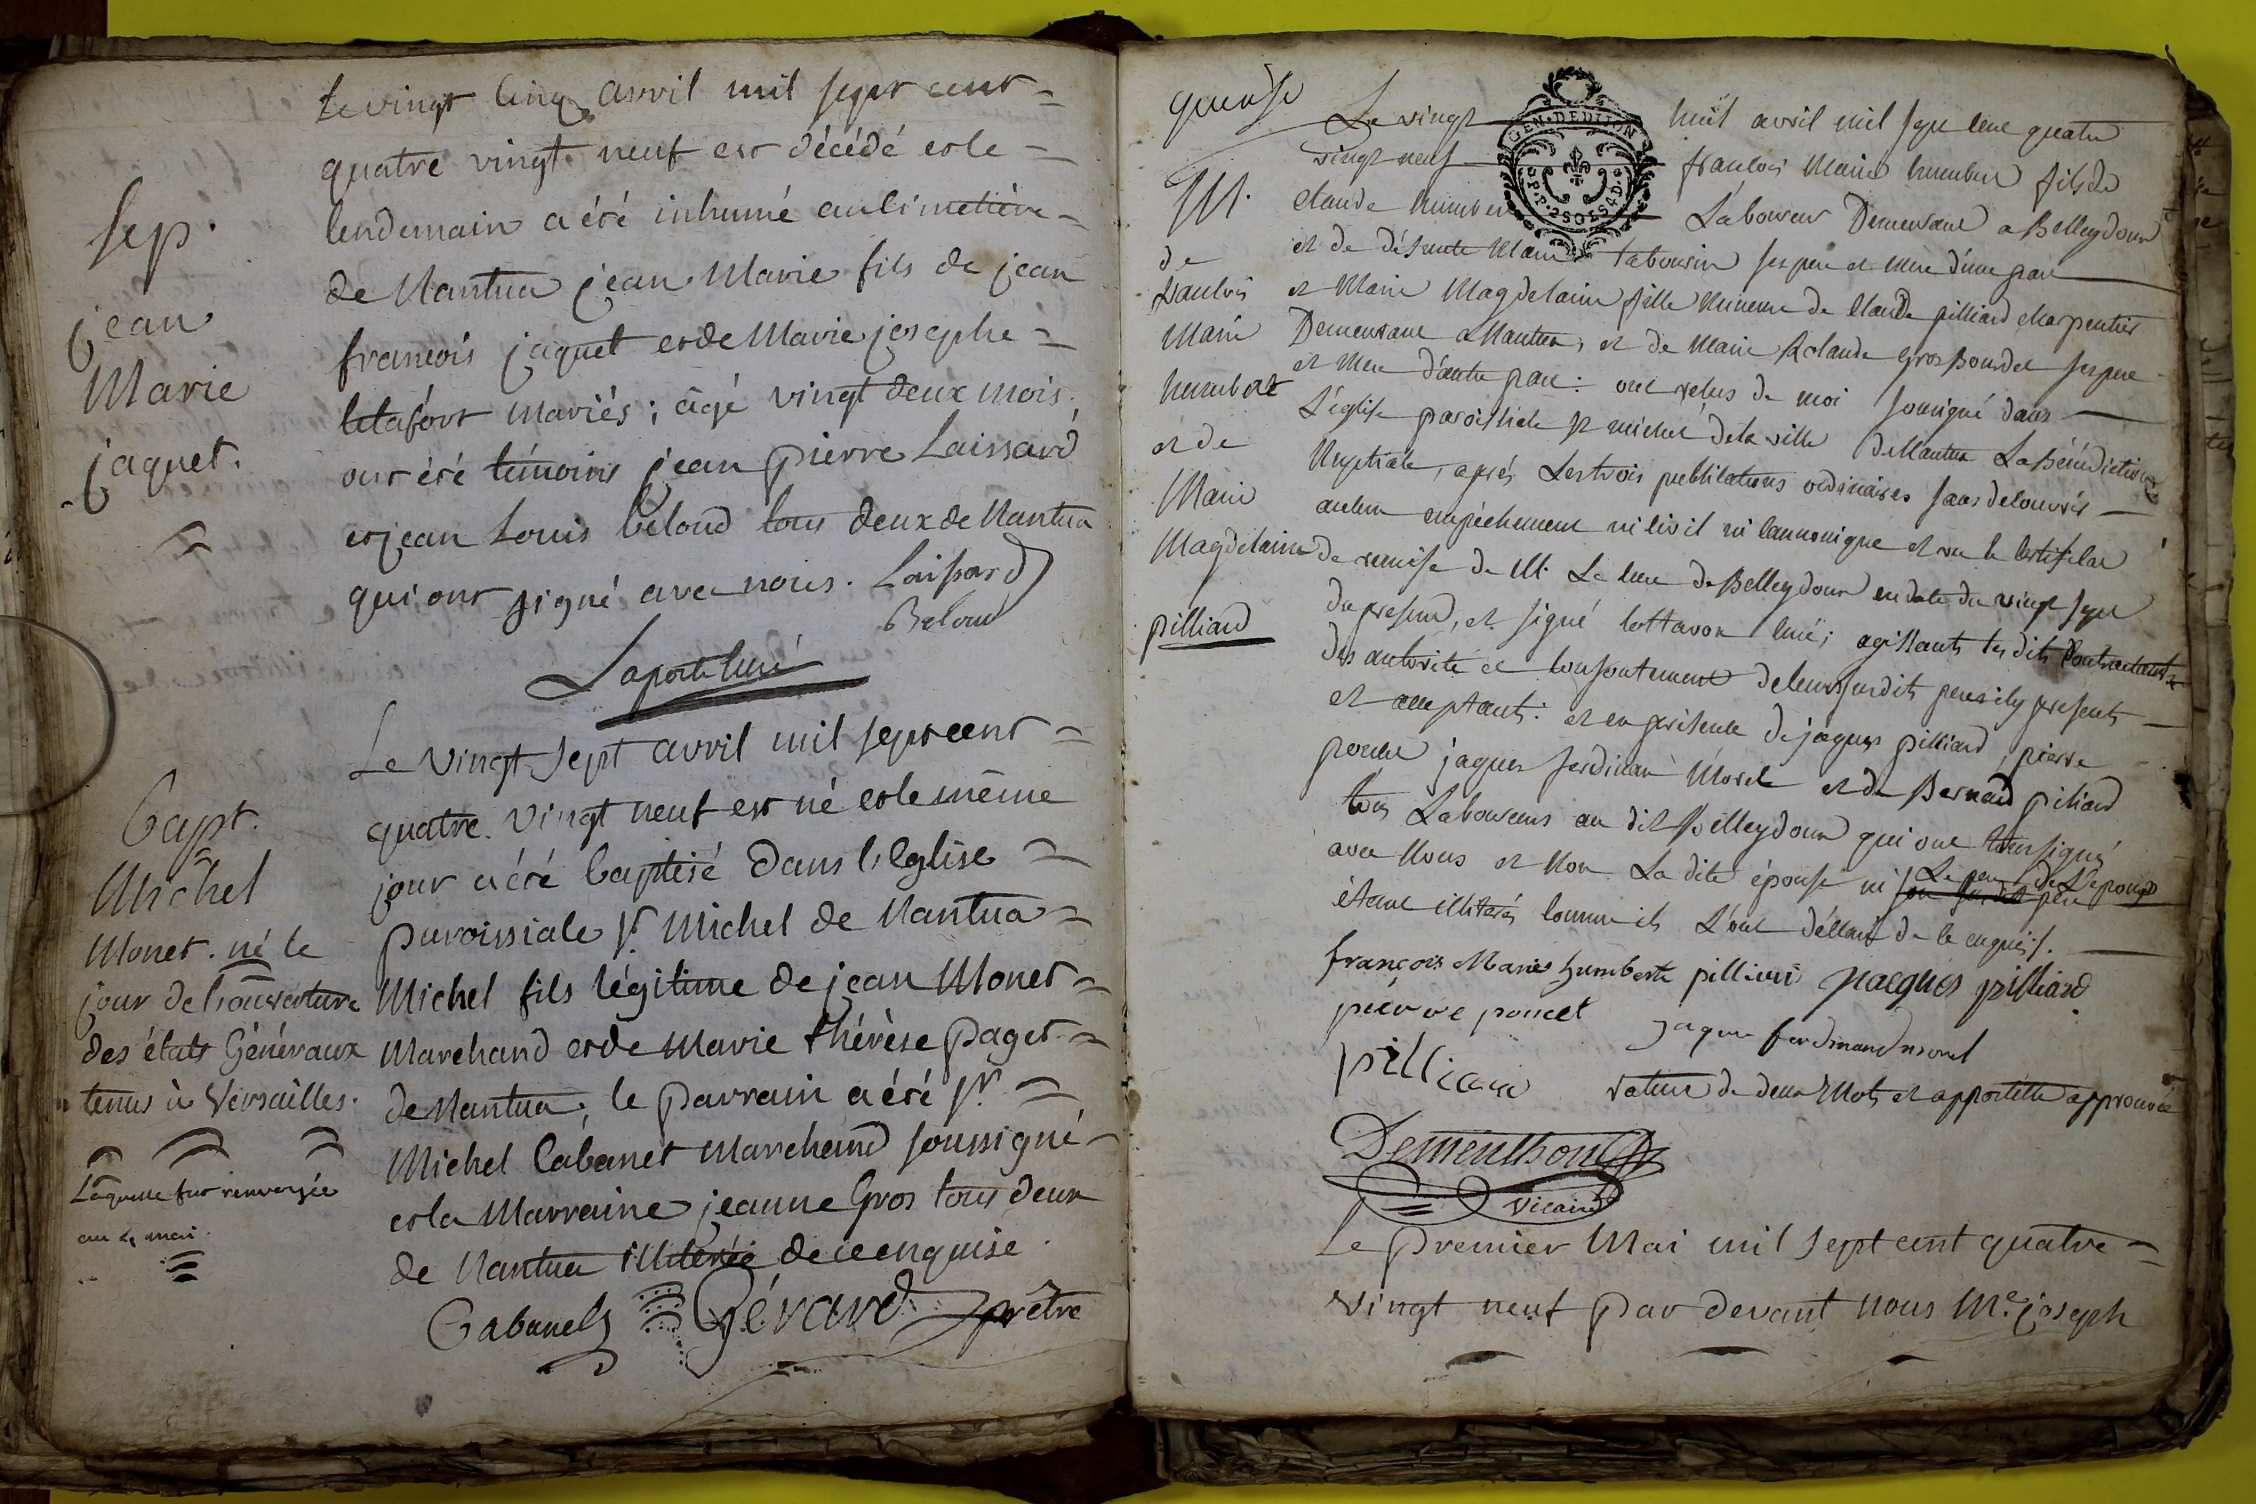 Sep.
jean
Marie
jaquet.
Le vingt cinq avril mil sept cent
quatre vingt neuf est décédé et le
lendemain a été inhumé au cimetière
de Nantua jean Marie fils de jean
francois jaquet et de Marie josephe
mariés ; âgé vingt deux mois.
ont été témoins jean pierre Laissard
et jean Louis beloud tous deux de Nantua
qui ont signé avec nous. Laissard
Beloud
Laporte Curé
Bapt.
Michel
Monet. né le
jour de l'ouverture
des états Généraux
tenus à Versailles.
Laquelle fut renvoyée
au 4 mai.
Le vingt sept avril mil sept cent
quatre vingt neuf est né et le même
jour a été baptisé dans l'Eglise
paroissiale St. Michel de Nantua
Michel fils légitime de jean Monet
Marchand et de Marie thérèse paget
de Nantua ; le parrain a été Sr.
Michel Cabanet Marchand soussigné
et la Marraine jeanne Gros tous deux
de Nantua illiterée de ce enquise.
Cabanet Gérard prêtre
M.
de
francois
Marie
humbert
et de
Marie
Magdelaine
pilliard
GEN. DE DIJON
Le vingt huit avril mil sept cent quatre
vingt neuf francois Marie humbert fils de
claude humbert Laboureur Demeurant a Belleydoux
et de défunte Marie tabourin ses pere et mere d'une part
et Marie Magdelaine fille mineure de claude pilliard charpentier
Demeurant a Nantua, et de Marie Rolande gros Bourdet ses pere
et mere d'autre part : ont reçus de moi soussigné dans
L'église paroissiale St michel de la ville de Nantua La Bénédiction
Nuptiale, aprés Les trois publications ordinaires sans découvrir
aucun empêchement ni civil ni cannonique et vu le certificat
de remise de M. Le curé de Belleydoux en date du vingt sept
du present, et signé curé ; agissants les dits Contractants
des autorité et consentement de leurs susdits peres icy presents
et acceptants : et en présence de jaques pilliard, pierre
poncet jaques ferdinand Morel et de Bernard piliard
tous Laboureurs au dit Belleydoux qui ont tous signés
avec Nous et Non La dite épouse ni Le pere de L'epoux
étant illiterés comme ils L'ont déclaré de ce enquis.
françois Marie humbert pilliard jacques pilliard
pierre poncet jaque ferdinand morel
pilliard rature de deux Mots et appostille approuvée
Dementhon
vicaire
Le premier Mai mil sept cent quatre
vingt neuf par devant nous Me. joseph